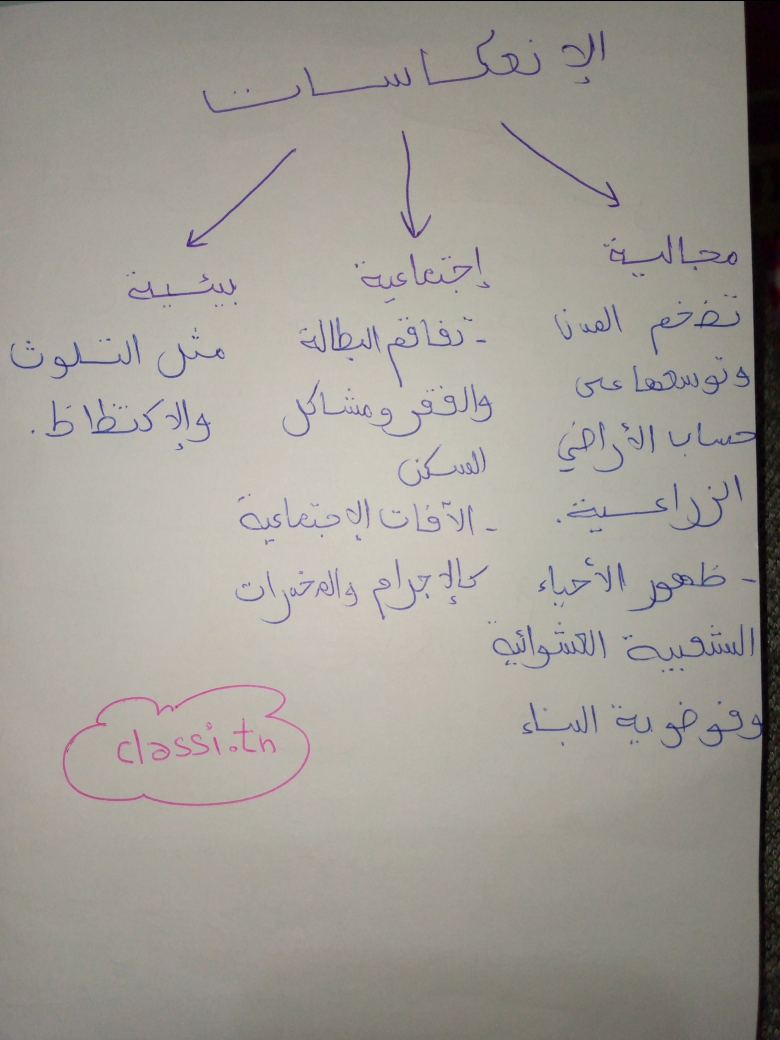 الإنعكاسات
مجالية
تضخم المدن
وتوسعها على
حساب الأراضي
الزراعية.
- ظهور الأحياء
الشعبية العشوائية
وفوضوية البناء
إجتماعية
- تفاقم البطالة
والفقر ومشاكل
السكن
- الآفات الإجتماعية
كالإجرام والمخدرات
بيئية
مثل التلوث
والإكتظاظ.
classi.tn